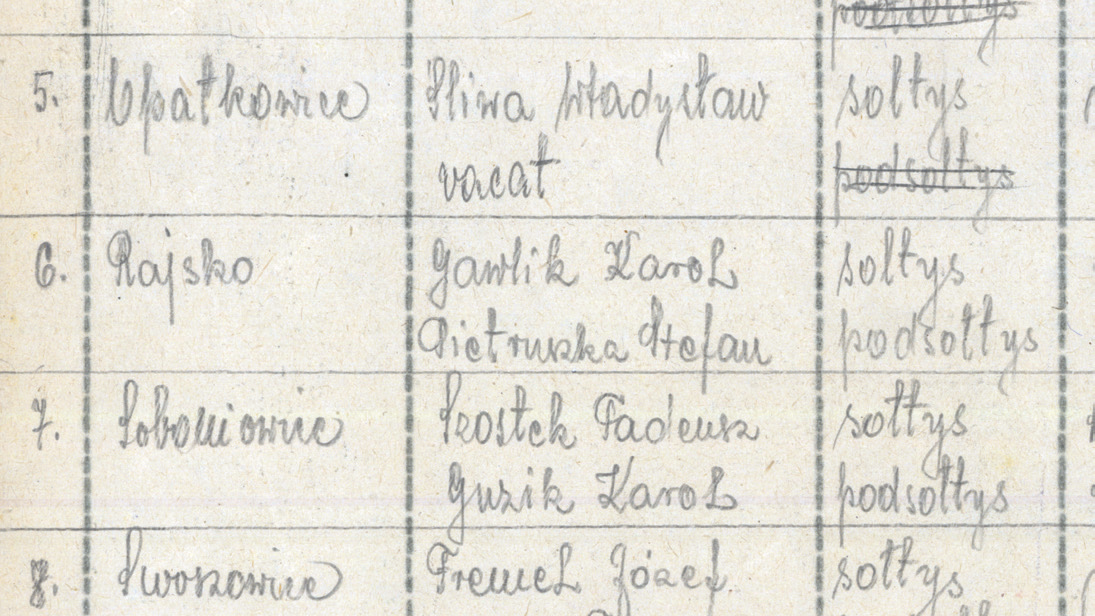 podsołtys
5. Opatkowice Śliwa Władysław sołtys
vacat podsołtys
6. Rajsko Gawlik Karol sołtys
Pietruszka Stefan podsołtys
7. Soboniowice Szostek Tadeusz sołtys
Guzik Karol podsołtys
8. Swoszowice Fremel Józef sołtys